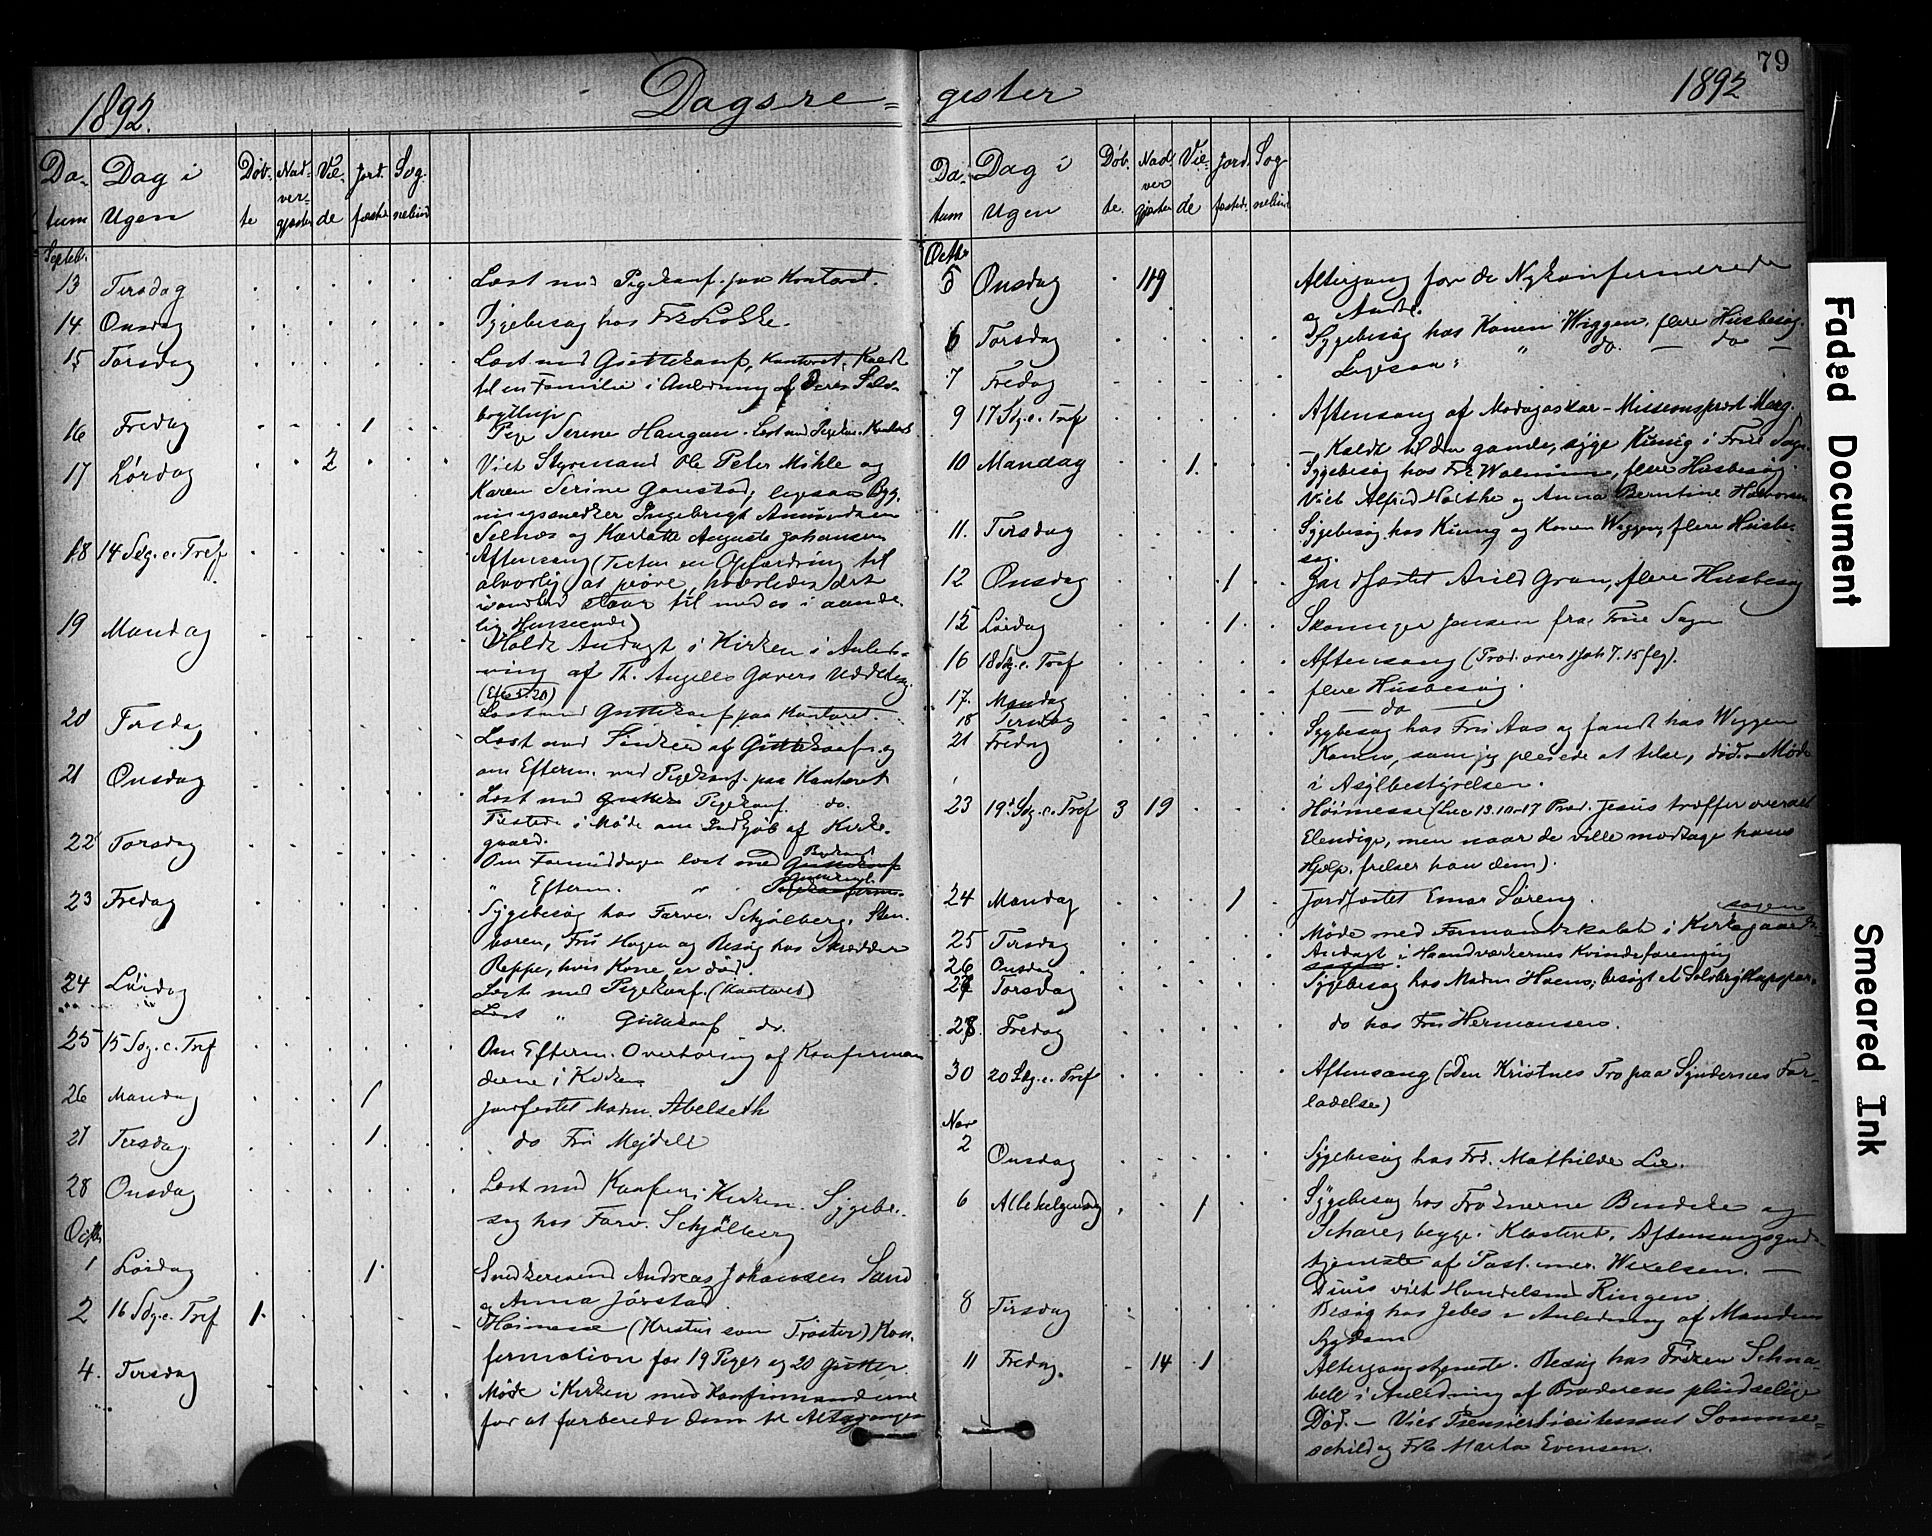 79
1892.
Dagsre=
gister
1892
Da-
tum
Dag i
Ugen
Døb-
te
Nad-
ver-
gjæster
Vie-
de
Jord-
fæstede
Sog-
nebud
Septeb.
13 Tirsdag Læst med Pigekonf. paa Kontoret.
14 Onsdag Sygebesøg hos Frk
15 Torsdag Læst med Guttekonf, Kontoret. Kaldt
til en Familie i Anledning af Deres Sølv-
bryllup
16 Fredag 1 Pige Serine Haugan. Læst med Pigekon. Kontoret
17 Lørdag 2 Viet Styrmand Ole Peter Mihle og
Karen Serine Gaustad, ligesaa Byg-
ningssnedker Ingebrigt Amundsen
Selnæs og Karlotte Auguste Johansen
18 14 Sdg. e. Tref Aftensang (Texten en Opfordring til
alvorlig at prøve, hvorledes det
staar til med os i aande-
lig Henseende)
19 Mandag Holdt Andagt i Kirken i Anled-
ning af Th. Angells Gavers Uddeling.
Læst med Guttekonf paa Kontoret.
20 Tirsdag Læst med af Guttekonf og
om Efterm. med Pigekonf. paa Kontoret
21 Onsdag Læst med Pigekonf. do.
Tilstede i Møde om Indkjøb af Kirke-
gaard.
22 Torsdag Om Formiddagen læst med Guttekonf
" Efterm. "
23 Fredag Sygebesøg hos Farver Schjølberg, Sten-
boren, Fru Hagen og Besøg hos Skrædder
Reppe, hvis Kone er død.
24 Lørdag Læst med Pigekonf. (Kontoret)
Læst " Guttekonf do.
25 15 Sdg. e. Tref Om Efterm. Overhøring af Konfirman
derne i Kirken
26 Mandag 1 Jordfæstet Madm. Abelseth
27 Tirsdag 1. do Fru Mejdell
28 Onsdag Læst med Konf. i Kirken. Sygebe-
søg hos Farv. Schjølberg
Octb.
1 Lørdag 1. Snedkersvend Andreas Johansen Sand
og Anna Jørstad.
2 16 Sdg. e. Tref 1. Høimesse (Kristus som Trøster) Kon-
firmation for 19 Piger og 20 Gutter.
4. Tirsdag Møde i Kirken med Konfirmanderne
for at forberede dem til Altergangen
Da-
tum
Dag i
Ugen
Døb-
te.
Nad-
ver
gjæster
Vie-
de
Jord-
fæsted.
Sog-
nebud
Octbr
5 Onsdag 119 Altergang for de Nykonfirmerede
og Andre.
6 Torsdag Sygebesøg hos Konen Wiggen, flere Husbesøg.
7 Fredag Ligesaa: " do. — do —
9 17 Sdg. e. Tref Aftensang af Madagaskar-Missionsprest
— Kaldt til den gamle, syge Kunig i Frue Sogn.
10 Mandag 1. Sygebesøg hos Frk. flere Husbesøg.
Viet Alfred Holthe og Anna Berntine Halvorsen
11. Tirsdag Sygebesøg hos Kunig og Konen Wiggen, flere Husbe-
søg.
12 Onsdag 1 Jordfæstet Arild Gran, flere Husbesøg
15 Lørdag 1. Skomager Jensen fra Frue Sogn
16 18 Sdg. e. Tref Aftensang (Præd. over 1 Joh 7. 15 flg).
17. Mandag flere Husbesøg.
18 Tirsdag — do —
21 Fredag Sygebesøg hos Fru Aas og fandt hos Wiggen
Konen, som jeg pleiede at tilse, død. — Møde
i Asylbestyrelsen.
23 19. Sdg. e. Tref 3 19 Høimesse (Luc 13. 10-17 Præd. Jesus træffer overalt
Elendige, men naar de ville modtage hans
Hjelp, frelser han dem).
24 Mandag 1 Jordfæstet Einar Løreng.
25 Tirsdag Møde med Formandskabet i Kirkegaards-
sagen
26 Onsdag Andagt i Haandværkernes Kvindeforening
27 Torsdag Sygebesøg hos Madm Moens; besøgt et Sølvbryllupspar.
28. Fredag do hos Fru Hermansen.
30 20 Sdg. e. Tref Aftensang (Den Kristnes Tro paa Syndernes For-
ladelse)
Nov
2 Onsdag Sygebesøg hos Frk. Mathilde Lie.
6 Allehelgensdag 1 Sygebesøg hos Frøknerne Bendeke og
Schare, begge i Klosteret. Aftensangsgud-
tjeneste af Past. emer. Wexelsen. —
viet Handelsmd Ringen
8 Tirsdag Besøg hos Jebes i Anledning af Mandens
Sygdom
11 Fredag. 14 1 Altergangstjeneste. Besøg hos Frøken Schna-
bell i Anledning af Broderens pludselige
Død. — Viet Premierlieutenant Somme-
schild og Frk Marta Evensen.
Faded Document
Smeared Ink